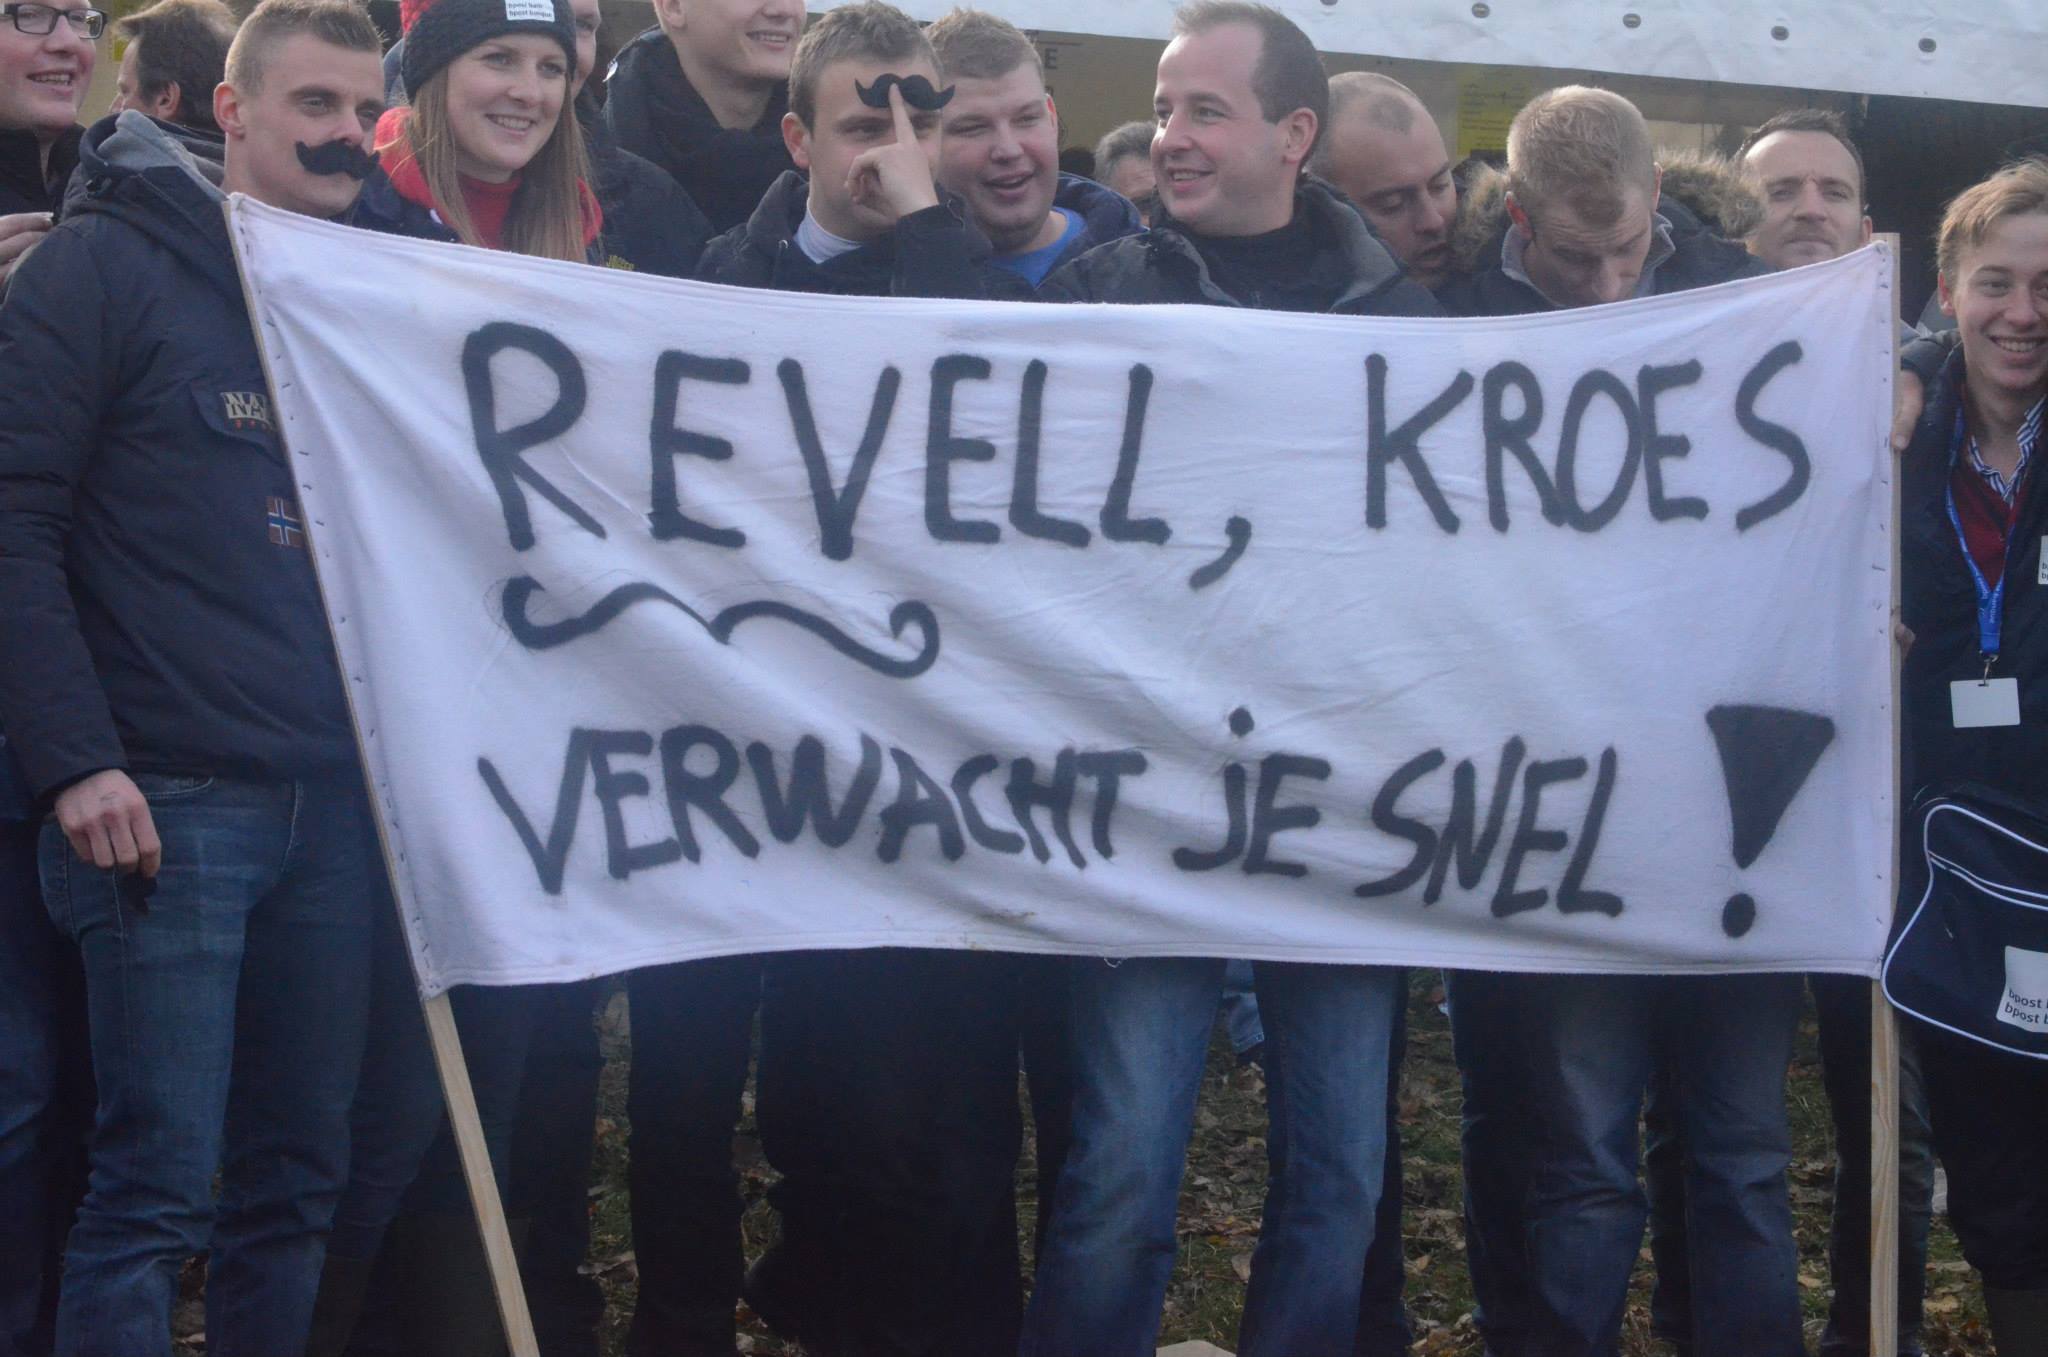 bpost bank
bpost banque
REVELL, KROES
VERWACHT jE SNEL!
bpost
bpost b